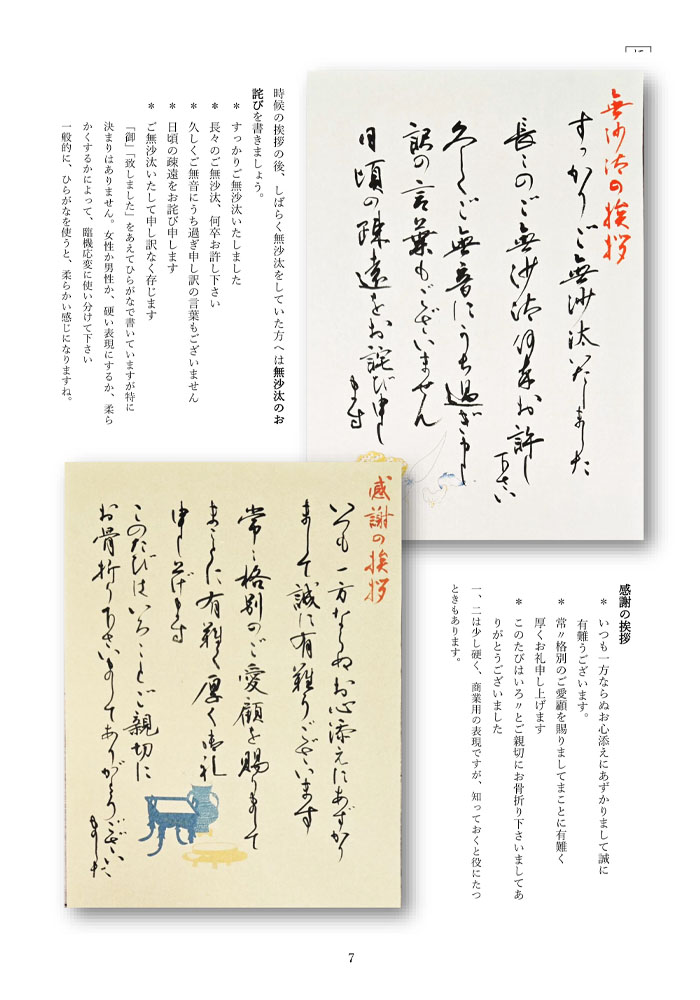 無沙汰の挨拶
すっかりご無沙汰いたしました
長々のご無沙汰何卒お許し
下さい
久しくご無音にうち過ぎ申し
訳の言葉もございません
日頃の疎遠をお詫び申し
ます
時候の挨拶の後、しばらく無沙汰をしていた方へは無沙汰のお
詫びを書きましょう。
＊ すっかりご無沙汰いたしました
＊ 長々のご無沙汰、何卒お許し下さい
＊ 久しくご無音にうち過ぎ申し訳の言葉もございません
＊ 日頃の疎遠をお詫び申します
＊ ご無沙汰いたして申し訳なく存じます
「御」「致しました」をあえてひらがなで書いていますが特に
決まりはありません。女性か男性か、硬い表現にするか、柔ら
かくするかによって、臨機応変に使い分けて下さい
一般的に、ひらがなを使うと、柔らかい感じになりますね。
感謝の挨拶
＊ いつも一方ならぬお心添えにあずかりまして誠に
有難うございます。
＊ 常〃格別のご愛顧を賜りましてまことに有難く
厚くお礼申し上げます
＊ このたびはいろ〃とご親切にお骨折り下さいましてあ
りがとうございました
一、二は少し硬く、商業用の表現ですが、知っておくと役にたつ
ときもあります。
感謝の挨拶
いつも一方ならぬお心添えにあずかり
まして誠に有難うございます
常々格別のご愛顧を賜りまして
まことに有難く厚く御礼
申し上げます
このたびはいろ〳〵とご親切に
お骨折り下さいましてありがとうござい
ました
7